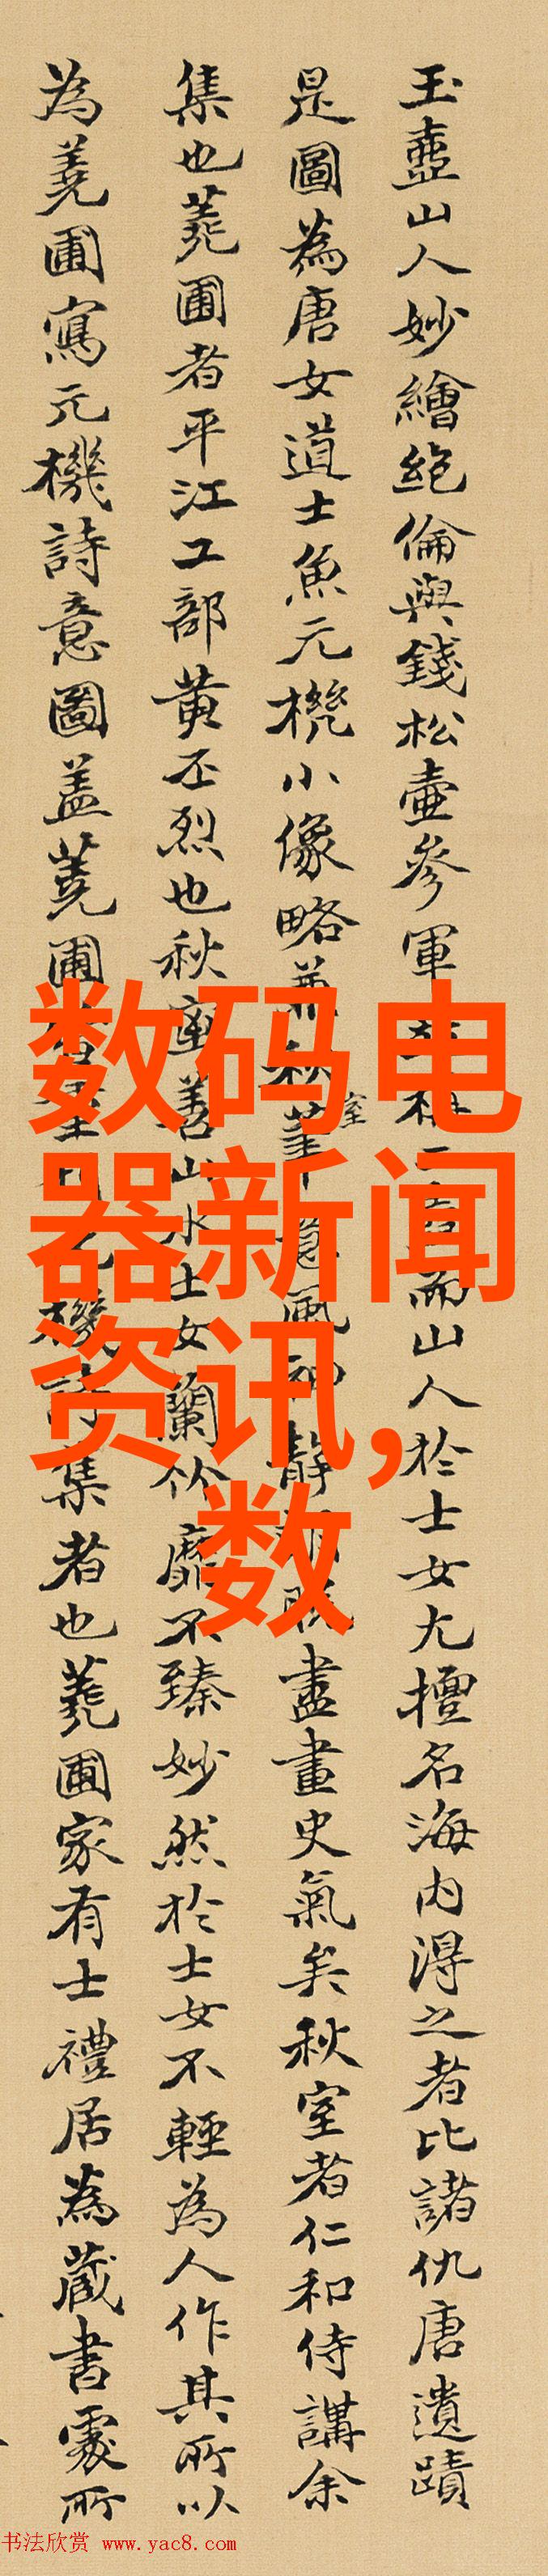 玉壺山人妙繪絶倫與錢松壺參軍
而山人於士女尤擅名海内得之者比諸仇唐遺蹟
是圖為唐女道士魚元機小像略兼秋室
靜
盡畫史氣矣秋室者仁和侍講余
集也蕘圃者平江工部黄丕烈也秋室善山水士女蘭竹靡不臻妙然於士女不輕為人作其所以
為蕘圃寫元機詩意圖盖蕘圃
機詩集者也蕘圃家有士禮居為藏書處所
数码电
器新闻
资讯,
数
书法欣赏 www.yac8.com